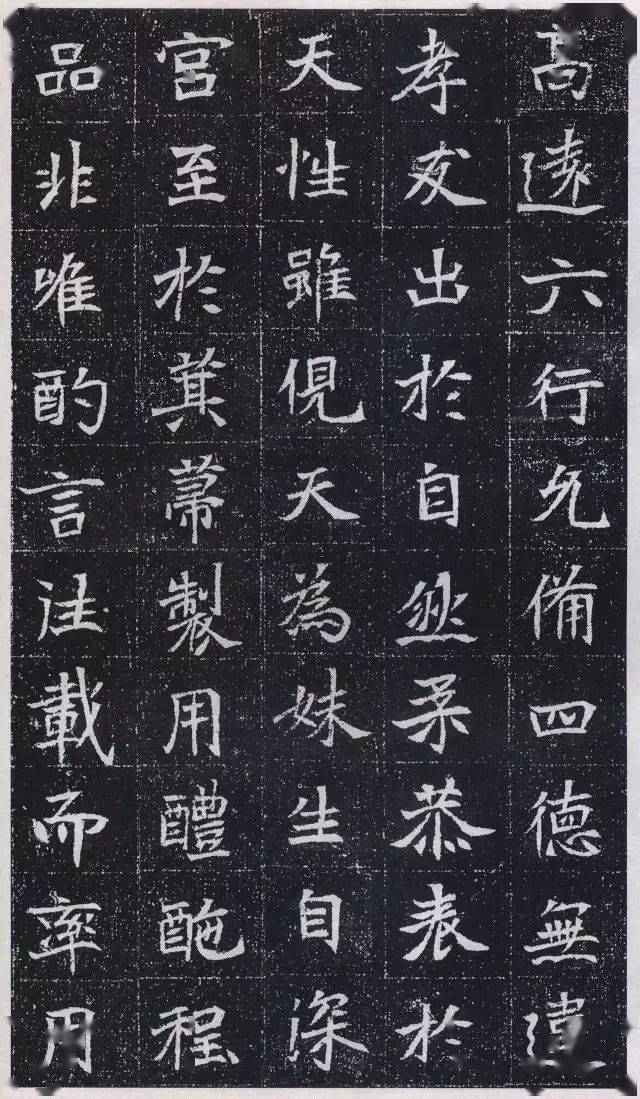 高遠六行允備四德無違
孝友出於自然柔恭表於
天性雖俔天為妹生自深
宮至於箕箒製用醴酏程
品非唯酌言往載而率用